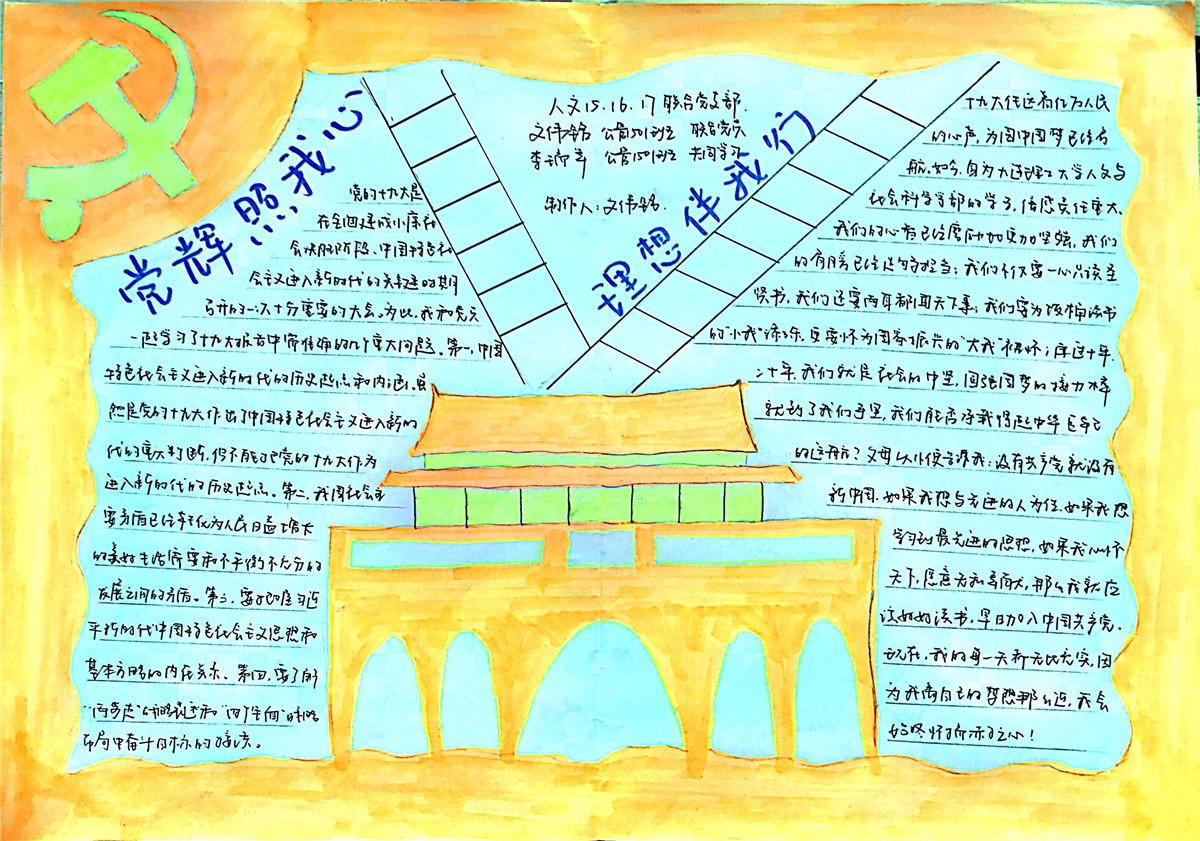 党辉照我心
理想伴我们
人文15.16.17联合党支部
文伟铭 公管1501班 联合党员
公管1501班 共同学习
制作人：文伟铭
党的十九大是
在全面建成小康社
会决胜阶段、中国特色社
会主义进入新时代的关键时期
召开的一次十分重要的大会。为此，我和党员
一起学习了十九大报告中需要理解的几个重大问题。第一，中国
特色社会主义进入新时代的历史起点和内涵，虽
然是党的十九大作出了中国特色社会主义进入新时
代的重大判断，但不能把党的十九大作为
进入新时代的历史起点。第二，我国社会主
要矛盾已经转化为人民日益增长
的美好生活需要和不平衡不充分的
发展之间的矛盾。第三，要把握习近
平新时代中国特色社会主义思想和
基本方略的内在关系、第四，要了解
“两步走”战略和“四个全面”战略
布局中奋斗目标的接续。
十九大传达着亿万人民
的心声，为圆中国梦已经启
航。如今，身为大连理工大学人文与
社会科学学部的学子，倍感责任重大。
我们的心有已经磨砺加更加坚强，我们
的肩膀已经足够担当；我们不仅要一心只读圣
贤书，我们还要两耳都闻天下事；我们要为该格读书
的“小我”添乐，更要怀为国而振兴的“大我”襟怀；再过十年、
二十年，我们就是社会的中坚，国强国梦的接力棒
就到了我们手里，我们能否承载得起中华巨轮
的这舟？父母从小便告诉我：没有共产党就没有
新中国。如果我想与先进的人为伍，如果我想
学习到最先进的思想，如果我心怀
天下，愿意为和高大，那么我就应
该好好读书，早日加入中国共产党。
现在，我的每一天都无比充实，因
为我离自己的梦想那么近，我会
始终怀揣赤子之心！